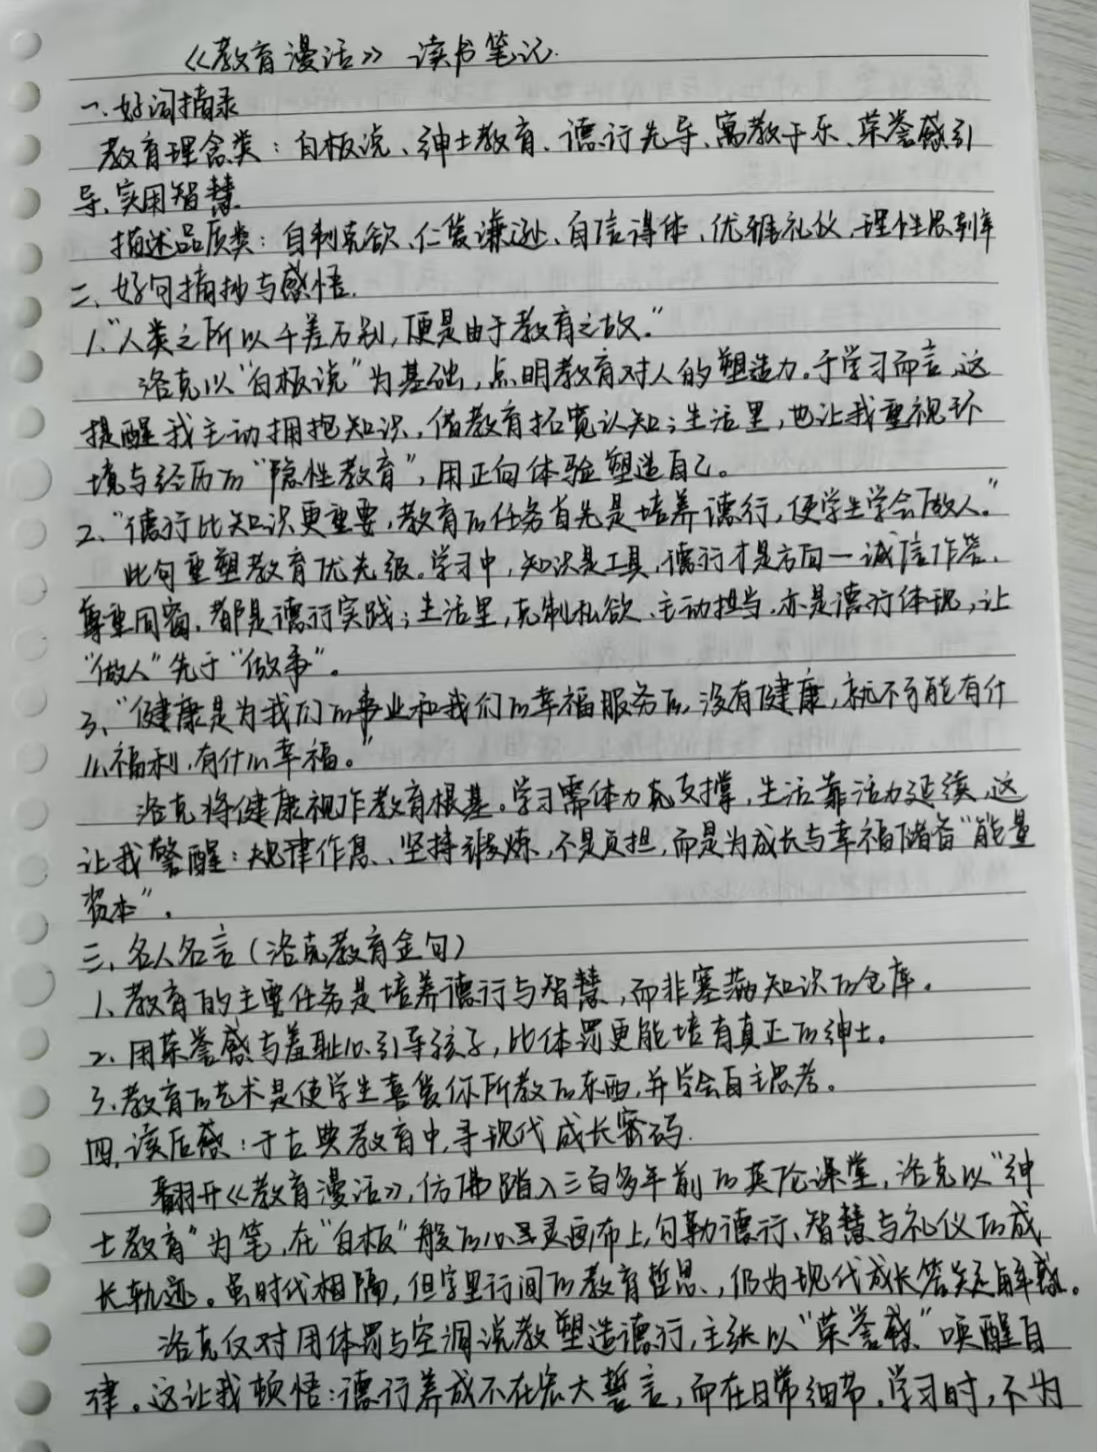 《教育漫话》读书笔记.
一、好词摘录
教育理念类：白板说、绅士教育、德行先导、寓教于乐、荣誉感引
导、实用智慧
描述品质类：自制克欲、仁爱谦逊、自信得体、优雅礼仪、理性
二、好句摘抄与感悟.
1."人类之所以千差万别，便是由于教育之故."
洛克以"白板说"为基础，点明教育对人的塑造力.于学习而言，这
提醒我主动拥抱知识，借教育拓宽认知；生活里，也让我重视环
境与经历的"隐性教育"，用正向体验塑造自己。
2、"德行比知识更重要，教育的任务首先是培养德行，使学生学会做人."
此句重塑教育优先级.学习中，知识是工具，德行才是方向一诚信作答、
尊重同窗，都是德行实践；生活里，克制私欲、主动担当，亦是德行体现，让
"做人"先于"做事"。
3、"健康是为我们的事业和我们的幸福服务的，没有健康，就不可能有什
么福利，有什么幸福。"
洛克将健康视作教育根基.学习需体力 支撑，生活靠活力延续，这
让我警醒：规律作息、坚持锻炼，不是负担，而是为成长与幸福储备"能量
资本"。
三、名人名言（洛克教育金句）
1、教育的主要任务是培养德行与智慧，而非塞满知识的仓库。
2.用荣誉感与羞耻心引导孩子，比体罚更能培育真正的绅士。
3、教育的艺术是使学生喜爱你所教的东西，并学会自主思考。
四、读后感：于古典教育中，寻现代成长密码.
翻开《教育漫话》，仿佛踏入三百多年前的英伦课堂，洛克以"绅
士教育"为笔，在"白板"般的心灵画布上，勾勒德行、智慧与礼仪的成
长轨迹。虽时代相隔，但字里行间的教育哲思、，仍为现代成长答疑解惑。
洛克反对用体罚与空洞说教塑造德行，主张以"荣誉感"唤醒自
律。这让我顿悟：德行养成不在宏大誓言，而在日常细节.学习时，不为